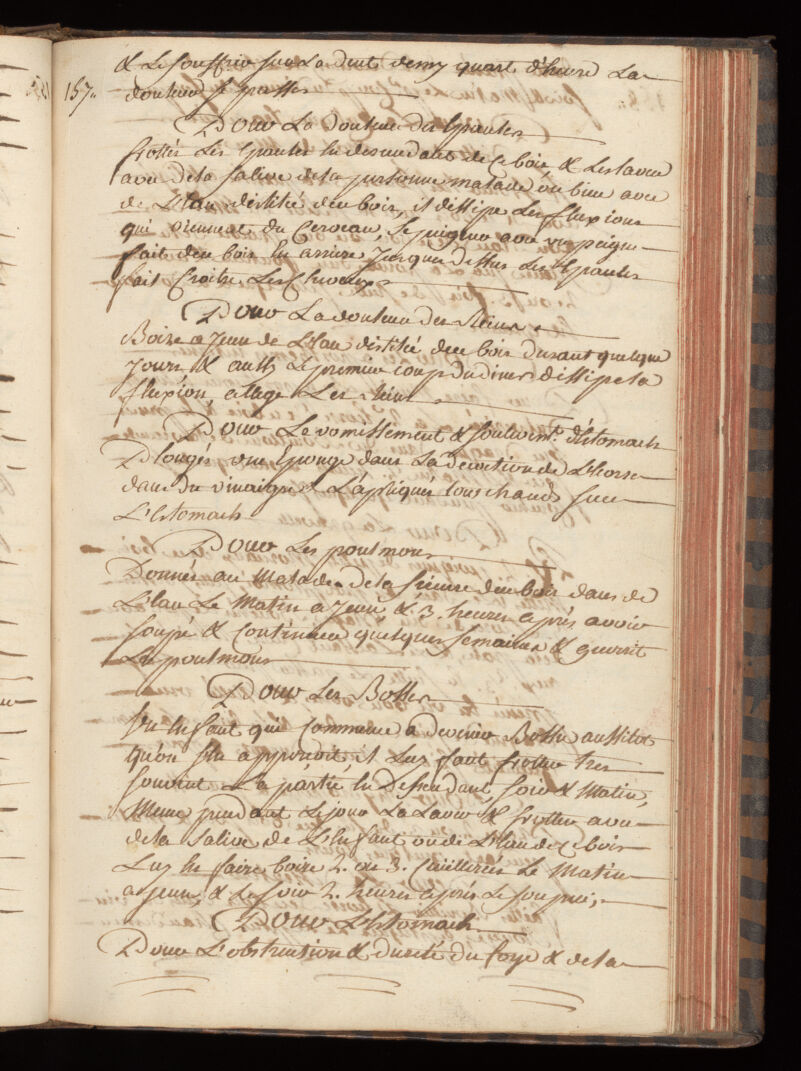 157.
& Le Souffrir sur La dent demy quart d'heure La
douleur se passe
Pour La douleur des Epaules
frottés Les Epaules en descendant de ce bois, & Les laver
avec de la Salive de la personne malade ou bien avec
de L'Eau distilé du bois, il dissipe Les fluxions
qui viennent du Cerveau, Se peigner avec un peigne
fait du bois En arriere jusques dessus Les Epaules
fait Croitre Les Cheveux
Pour La douleur des Reins
Boire a Jeun de L'Eau distilé du bois durant quelque
Jours & aussy Le premier coup du diner dissipe la
fluxion, allage Les Reins
Pour Le vomissement & soulevmt. d'Estomach
Plonger une Eponge dans La decoction de L'Ecorse
dans du vinaigre & L'apliquer tous chaud sur
L'Estomach
Pour Les poulmons
Donnés au Malade de la sieure du bois dans de
L'Eau Le Matin a Jeun & 3. heures aprés avoir
soupé & Continuer quelques semaines & guerit
Les poulmons
Pour Les Bosses
Un Enfant qui Commence a devenir Bossu aussitot
qu'on s'en apperçoit il Luy faut frotter tres
souvent La partie En Descendant, soir & Matin,
Meme pendant Le jour La Laver & frotter avec
de la Salive de L'Enfant ou de L'Eau de ce bois
Luy En faire boire 2. ou 3. Cuillerés Le Matin
a Jeun, & Le soir 2. heures aprés Le soupé,
Pour L'Estomach
Pour L'obstruction & dureté du foye & de la